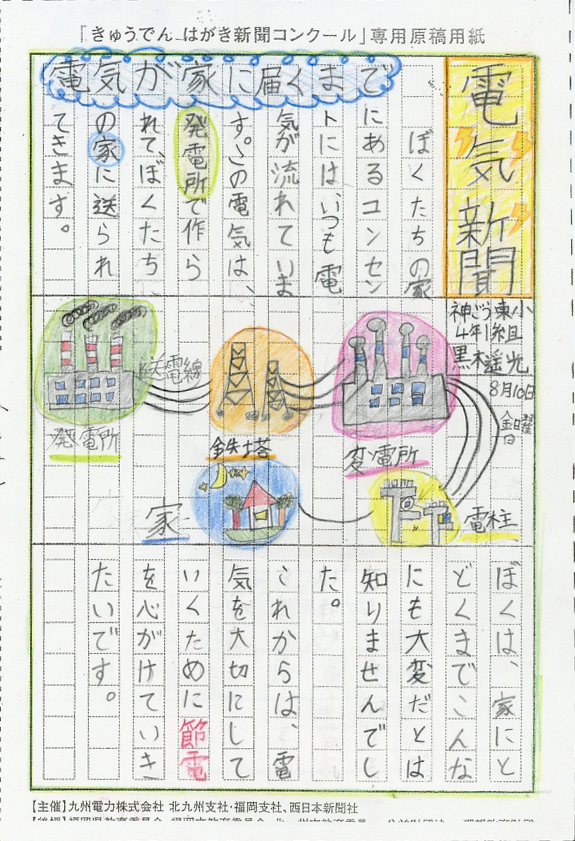 「きゅうでん はがき新聞コンクール」専用原稿用紙
電気新聞
電気が家に届くまで
ぼくたちの家
にあるコンセン
トにはいつも電
気が流れていま
す。この電気は、
発電所で作ら
れて、ぼくたち
の家に送られ
てきます。
神ごう東小
4年1組
黒木瑤光
8月10日
金曜日
発電所
送電線
鉄塔
変電所
電柱
家
ぼくは、家にと
どくまでこんな
にも大変だとは
知りませんでし
た。
これからは、電
気を大切にして
いくために節電
を心がけていき
たいです。
【主催】九州電力株式会社 北九州支社・福岡支社、西日本新聞社